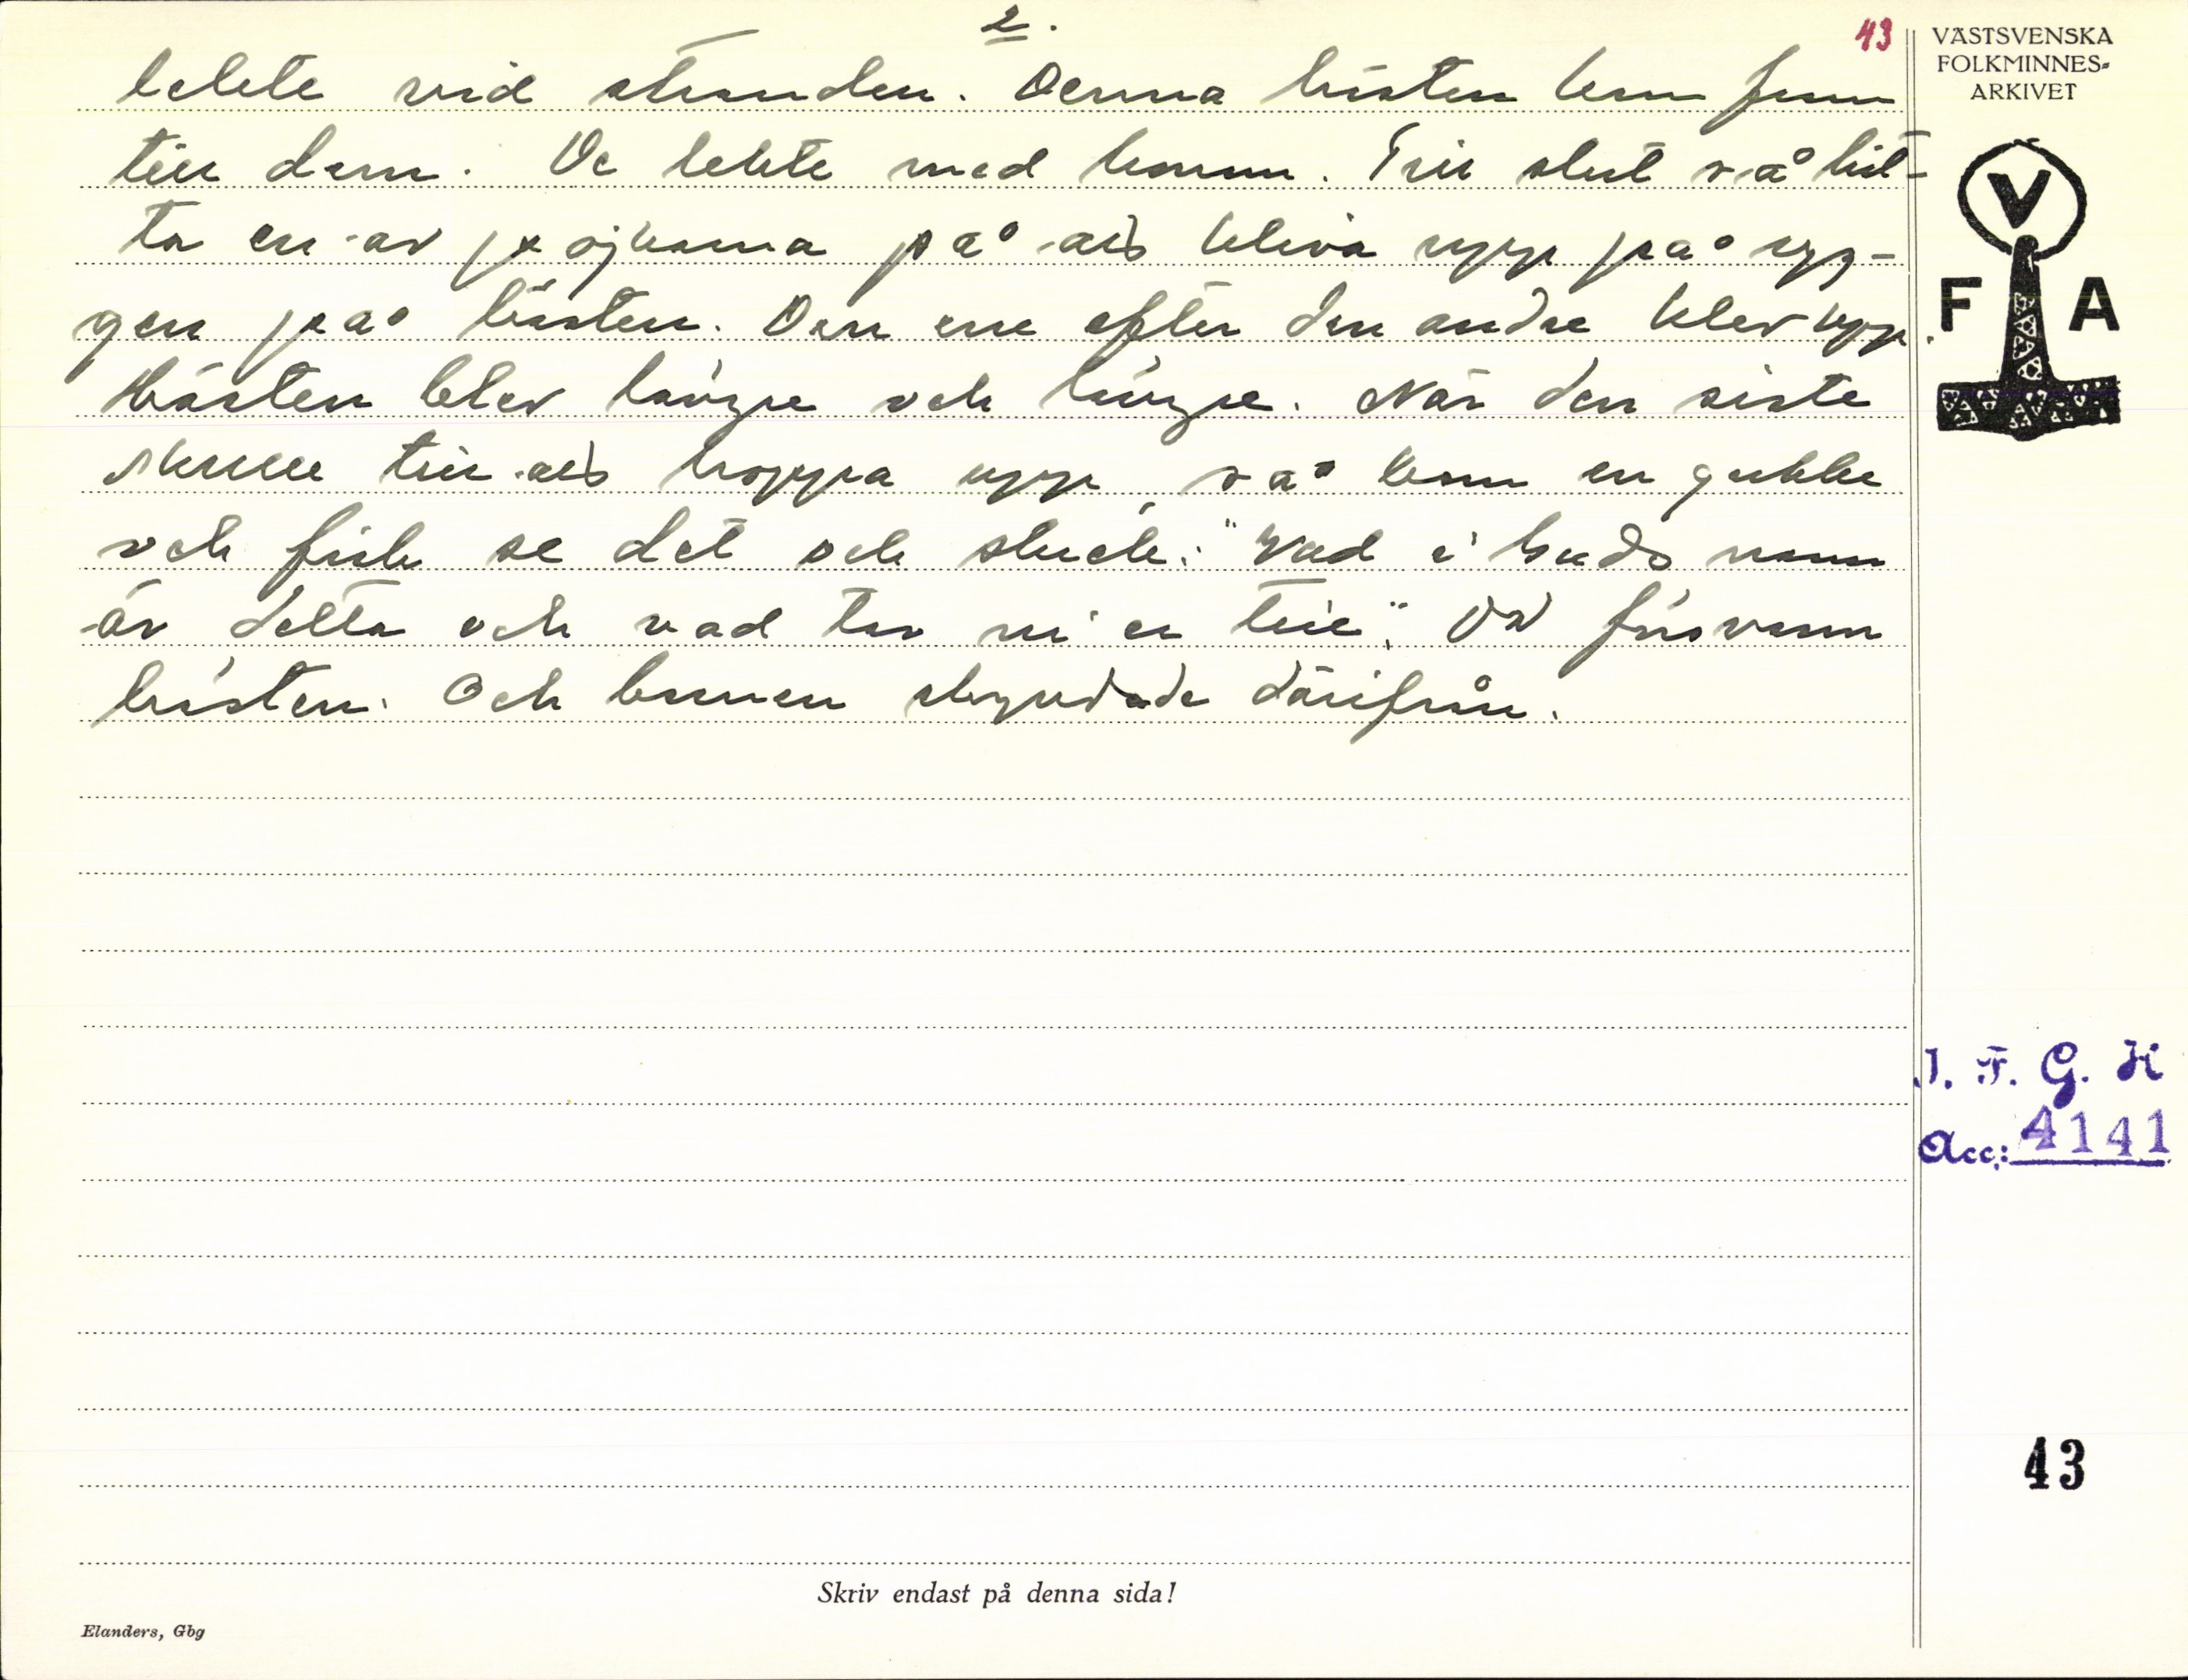 2.
43
lekte vid stranden. Denna hästen kom fram
till dem. De lekte med honom. Till slut så hit-
ta en av pojkarna på att kliva upp på ryg-
gen på hästen. Den ene efter den andre klev upp.
Hästen blev längre och längre. När den siste
skulle till att hoppa upp, så kom en gubbe
och fick se det och skrek: "Vad i Guds namn
är detta och vad tar ni er till". Då försvann
hästen. Och barnen skyndade därifrån.
VÄSTSVENSKA
FOLKMINNES-
ARKIVET
V
F A
I. F. G. H
Acc: 4141
43
Skriv endast på denna sida!
Elanders, Gbg